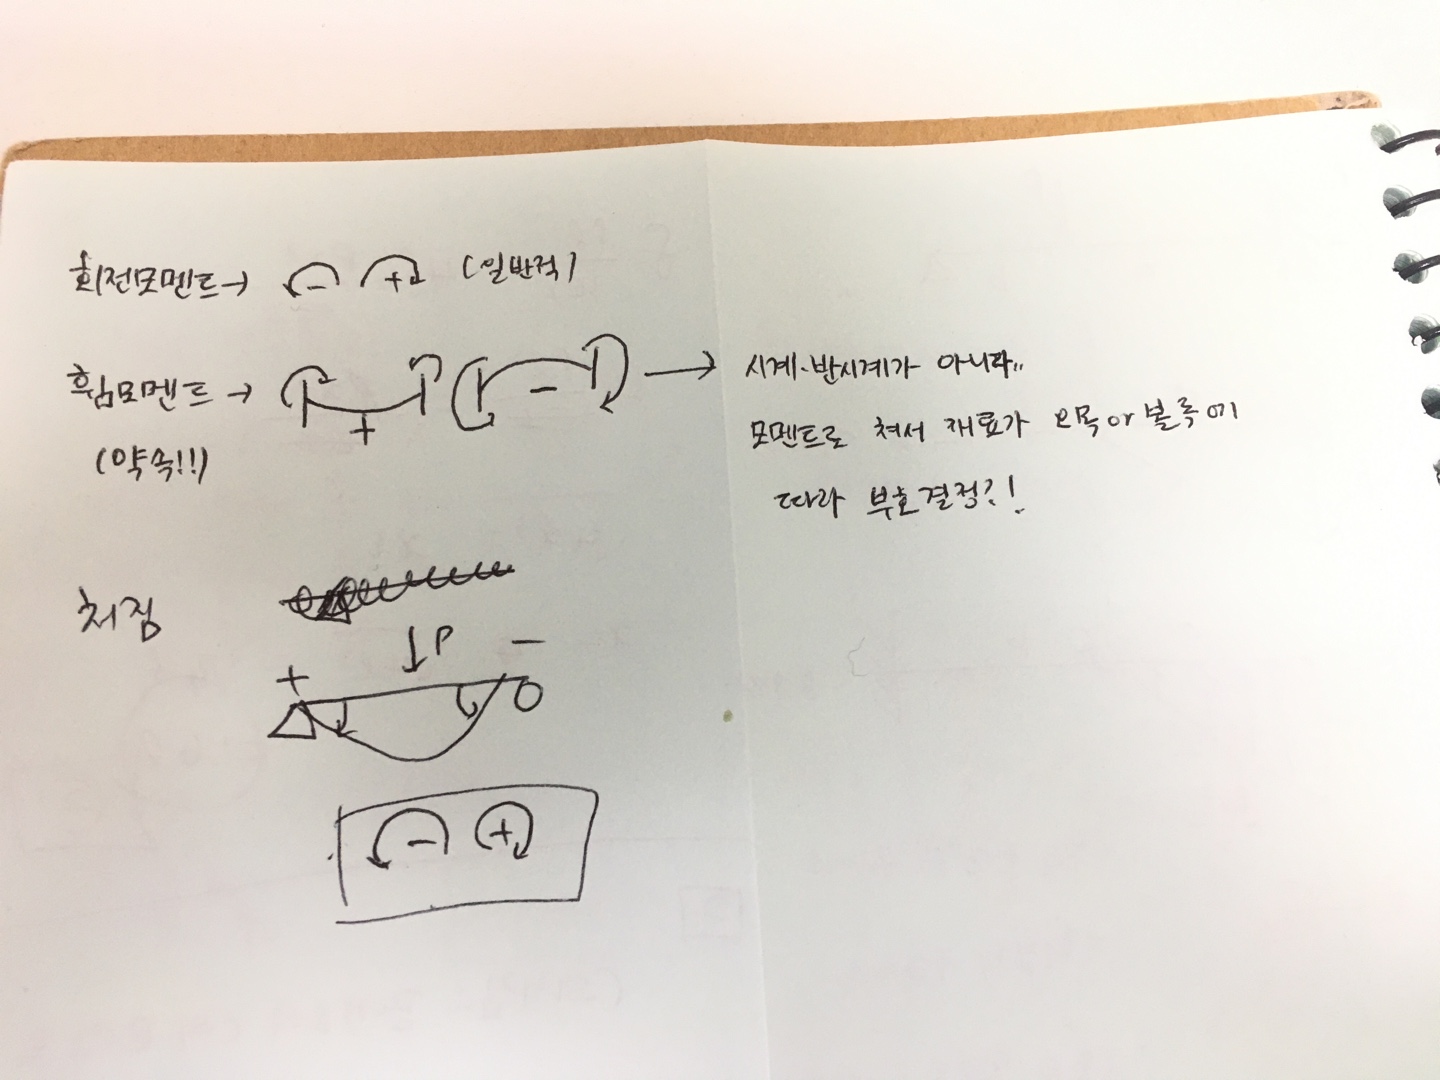 회전모멘트→ - + (일반적)
휨모멘트 → + - →
(약속!!)
시계.반시계가 아니라..
모멘트로 쳐서 재료가 오목or볼록에
따라 부호결정?!
처짐
↓P
+ -
- +